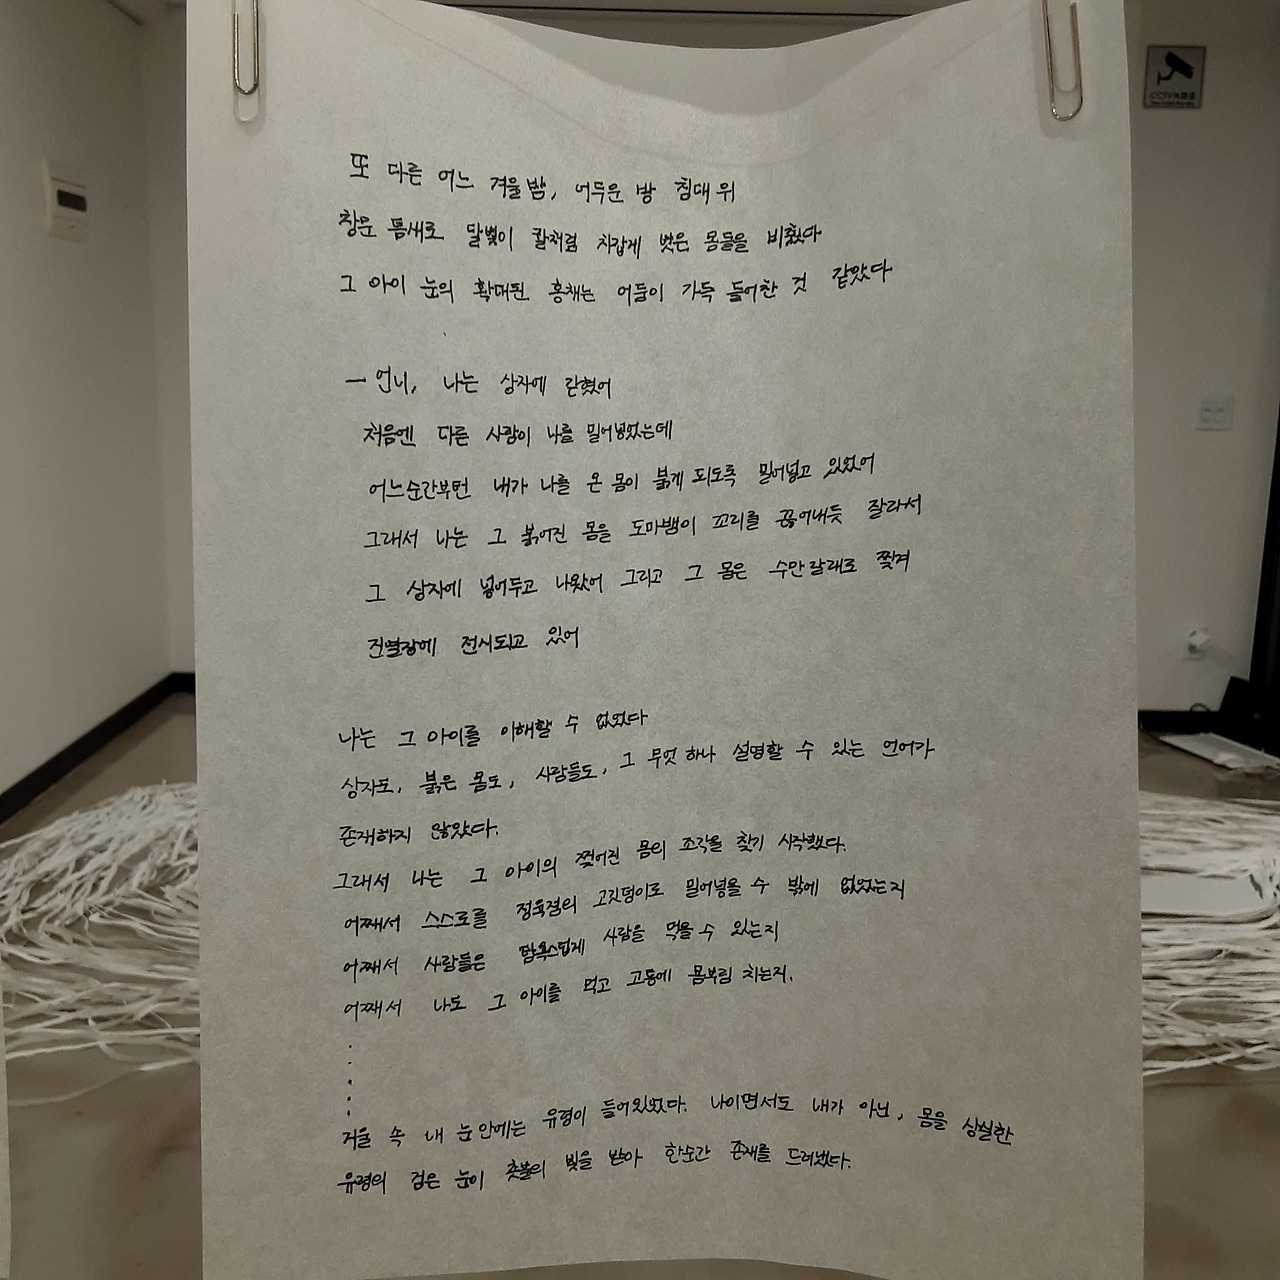 또 다른 어느 겨울밤, 어두운 방 침대 위
창문 틈새로 달빛이 칼처럼 차갑게 벗은 몸들을 비췄다
그 아이 눈의 확대된 홍채는 어둠이 가득 들어찬 것 같았다
— 언니, 나는 상자에 갇혔어
처음엔 다른 사람이 나를 밀어넣었는데
어느순간부턴 내가 나를 온 몸이 붉게 되도록 밀어넣고 있었어
그래서 나는 그 붉어진 몸을 도마뱀이 꼬리를 끊어내듯 잘라서
그 상자에 넣어두고 나왔어 그리고 그 몸은 수만갈래로 찢겨
진열장에 전시되고 있어
나는 그 아이를 이해할 수 없었다
상자도, 붉은 몸도, 사람들도, 그 무엇 하나 설명할 수 있는 언어가
존재하지 않았다.
그래서 나는 그 아이의 찢어진 몸의 조각을 찾기 시작했다.
어째서 스스로를 정육점의 고깃덩이로 밀어넣을 수 밖에 없었는지
어째서 사람들은 탐욕스럽게 사람을 먹을 수 있는지
어째서 나도 그 아이를 먹고 고통에 몸부림 치는지.
거울 속 내 눈안에는 유령이 들어있었다. 나이면서도 내가 아닌, 몸을 상실한
유령의 검은 눈이 촛불의 빛을 받아 한순간 존재를 드러냈다.